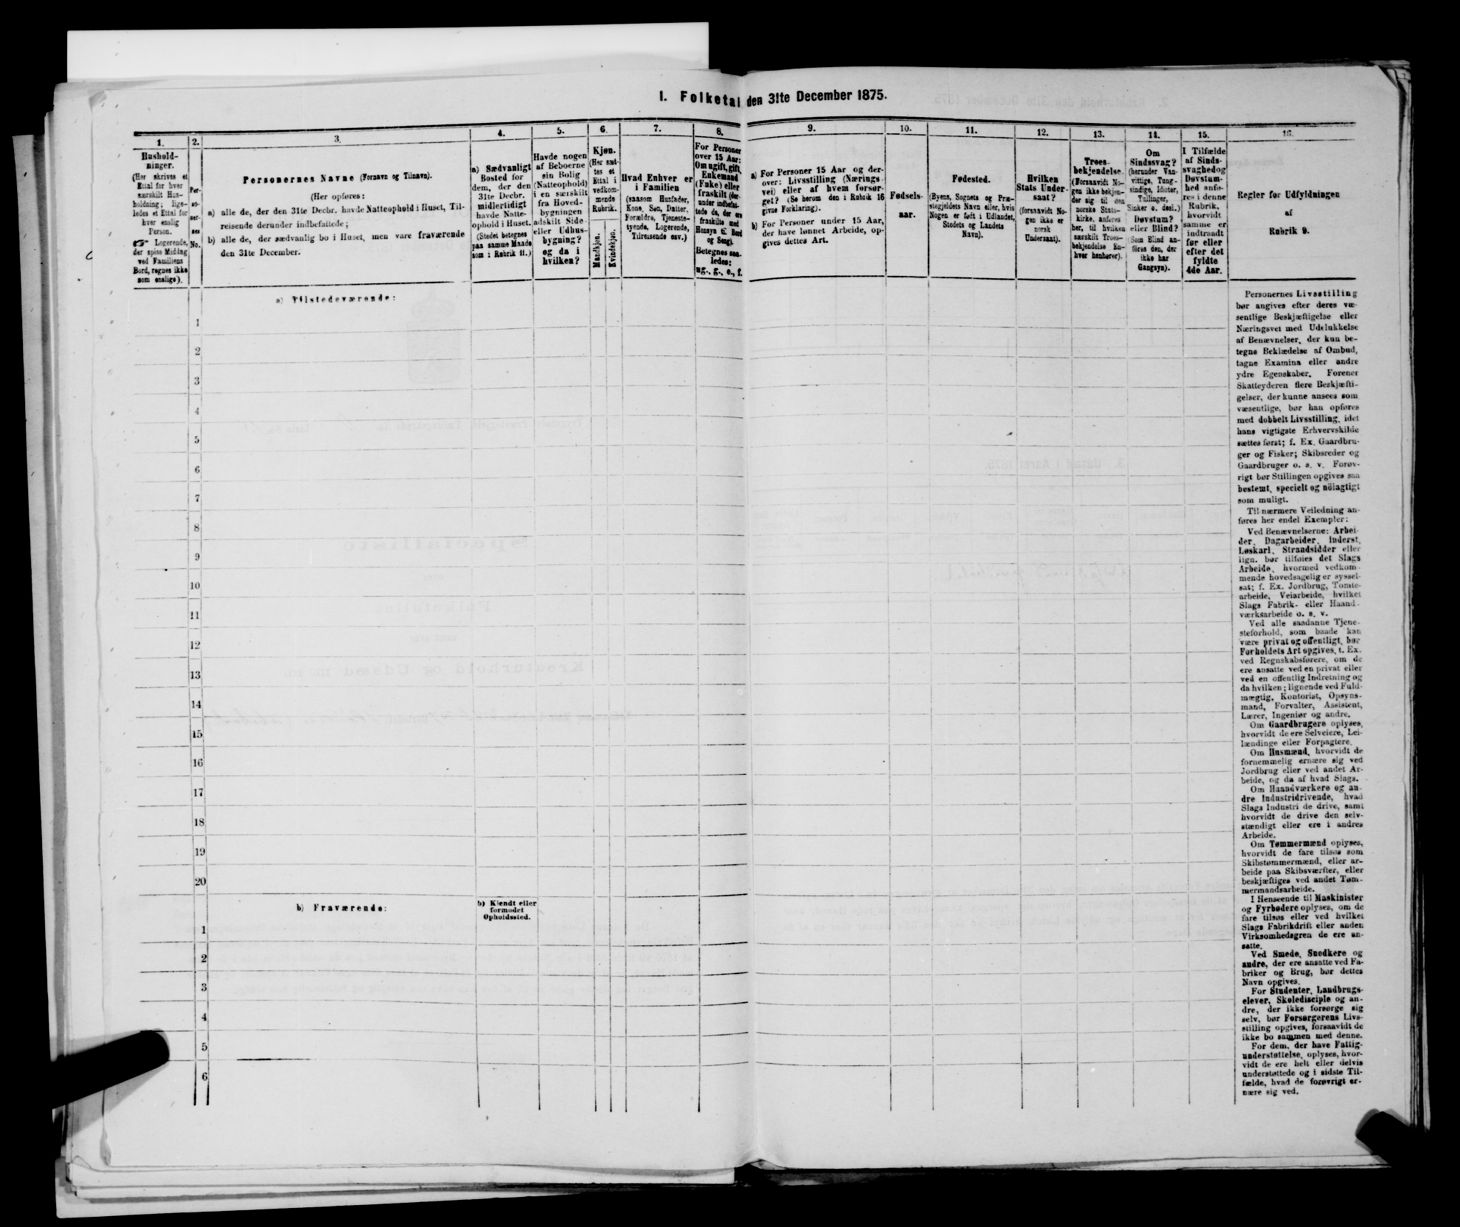 I. Folketal den 31te December 1875.
1.
Hushold-
ninger.
(Her skrives et
Ettal for hver
særskilt Hus-
holdning; lige-
ledes et Ettal for
hver enslig
Person.
☞ Logerende,
der spise Middag
ved Familiens
Bord, regnes ikke
som enslige).
2.
Per-
so-
ner-
nes
No.
3.
Personernes Navne (Fornavn og Tilnavn).
(Her opføres:
a) alle de, der den 31te Decbr. havde Natteophold i Huset, Til-
reisende derunder indbefattede;
b) alle de, der sædvanlig bo i Huset, men vare fraværende
den 31te December.
4.
a) Sædvanligt
Bosted for
dem, der den
31te Decbr.
midlertidigt
havde Natte-
ophold i Huset.
(Stedet betegnes
paa samme Maade
som i Rubrik 11.)
5.
Havde nogen
af Beboerne
sin Bolig
(Natteophold)
i en særskilt
fra Hoved-
bygningen
adskilt Side-
eller Udhus-
bygning?
og da i
hvilken?
6.
Kjøn.
(Her sæt-
tes et
Ettal i
vedkom-
mende
Rubrik.
Mandkjøn.
Kvindekjøn.
7.
Hvad Enhver er
i Familien
(saasom Husfader,
Kone, Søn, Datter,
Forældre, Tjeneste-
tyende, Logerende,
Tilreisende osv.)
8.
For Personer
over 15 Aar:
Om ugift, gift,
Enkemand
(Enke) eller
fraskilt (der-
under indbefat-
tede de, der ere
fraskilte med
Hensyn til Bord
og Seng).
Betegnes saa-
ledes:
ug., g., e., f.
9.
a) For Personer 15 Aar og der-
over: Livsstilling (Nærings-
vei) eller af hvem forsør-
get? (Se herom den i Rubrik 16
givne Forklaring).
b) For Personer under 15 Aar,
der have lønnet Arbeide, op-
gives dettes Art.
10.
Fødsels-
aar.
11.
Fødested.
(Byens, Sognets og Præ-
stegjeldets Navn eller, hvis
Nogen er født i Udlandet,
Stedets og Landets
Navn).
12.
Hvilken
Stats Under-
saat?
(forsaavidt No-
gen ikke er
norsk
Undersaat).
13.
Troes-
bekjendelse.
(Forsaavidt No-
gen ikke bekjen-
der sig til den
norske Stats-
kirke, anføres
her, til hvilken
særskilt Troes-
bekjendelse En-
hver henhører).
14.
Om
Sindssvag?
(herunder Van-
vittige, Tung-
sindige, Idioter,
Tullinger,
Sinker o. desl.)
Døvstum?
eller Blind?
(Som Blind an-
føres den, der
ikke har
Gangsyn).
15.
I Tilfælde
af Sinds-
svaghed og
Døvstum-
hed anfø-
res i denne
Rubrik,
hvorvidt
samme er
indtraadt
før eller
efter det
fyldte
4de Aar.
16.
Regler før Udfyldningen
af
Rubrik 9.
a) Tilstedeværende:
1
2
3
4
5
6
7
8
9
10
11
12
13
14
15
16
17
18
19
20
b) Fraværende:
b) Kjendt eller
formodet
Opholdssted.
1
2
3
4
5
6
Personernes Livsstilling
bør angives efter deres væ-
sentlige Beskjæftigelse eller
Næringsvei med Udelukkelse
af Benævnelser, der kun be-
tegne Beklædelse af Ombud,
tagne Examina eller andre
ydre Egenskaber. Forener
Skatteyderen flere Beskjæfti-
gelser, der kunne ansees som
væsentlige, bør han opføres
med dobbelt Livsstilling, idet
hans vigtigste Erhvervskilde
sættes først; f. Ex. Gaardbru-
ger og Fisker; Skibsreder og
Gaardbruger o. s. v. Forøv-
rigt bør Stillingen opgives saa
bestemt, specielt og nöiagtigt
som muligt.
Til nærmere Veiledning an-
føres her endel Exempler:
Ved Benævnelserne: Arbei-
der, Dagarbeider, Inderst,
Løskarl, Strandsidder eller
lign. bør tilføies det Slags
Arbeide, hvormed vedkom-
mende hovedsagelig er syssel-
sat; f. Ex. Jordbrug, Tomte-
arbeide, Veiarbeide, hvilket
Slags Fabrik- eller Haand-
værksarbeide o. s. v.
Ved alle saadanne Tjene-
steforhold, som baade kan
være privat og offentligt, bør
Forholdets Art opgives, t. Ex.
ved Regnskabsførere, om de
ere ansatte ved en privat eller
ved en offentlig Indretning og
da hvilken; lignende ved Fuld-
mægtig, Kontorist, Opsyns-
mand, Forvalter, Assistent,
Lærer, Ingeniør og andre.
Om Gaardbrugere oplyses,
hvorvidt de ere Selveiere, Lei-
lændinge eller Forpagtere.
Om Husmænd, hvorvidt de
fornemmelig ernære sig ved
Jordbrug eller ved andet Ar-
beide, og da af hvad Slags.
Om Haandværkere og an-
dre Industridrivende, hvad
Slags Industri de drive, samt
hvorvidt de drive den selv-
stændigt eller ere i andres
Arbeide.
Om Tømmermænd oplyses,
hvorvidt de fare tilsøs som
Skibstømmermænd, eller ar-
beide paa Skibsværfter, eller
beskjæftiges ved andet Tøm-
mermandsarbeide.
I Henseende til Maskinister
og Fyrbødere oplyses, om de
fare tilsøs eller ved hvilket
Slags Fabrikdrift eller anden
Virksomhedsgren de ere an-
satte.
Ved Smede, Snedkere og
andre, der ere ansatte ved Fa-
briker og Brug, bør dettes
Navn opgives.
For Studenter, Landbrugs-
elever, Skoledisciple og an-
dre, der ikke forsørge sig
selv, bør Forsørgerens Livs-
stilling opgives, forsaavidt de
ikke bo sammen med denne.
For dem, der have Fattig-
understøttelse, oplyses, hvor-
vidt de ere helt eller delvis
understøttede og i sidste Til-
fælde, hvad de forøvrigt er-
nære sig ved.